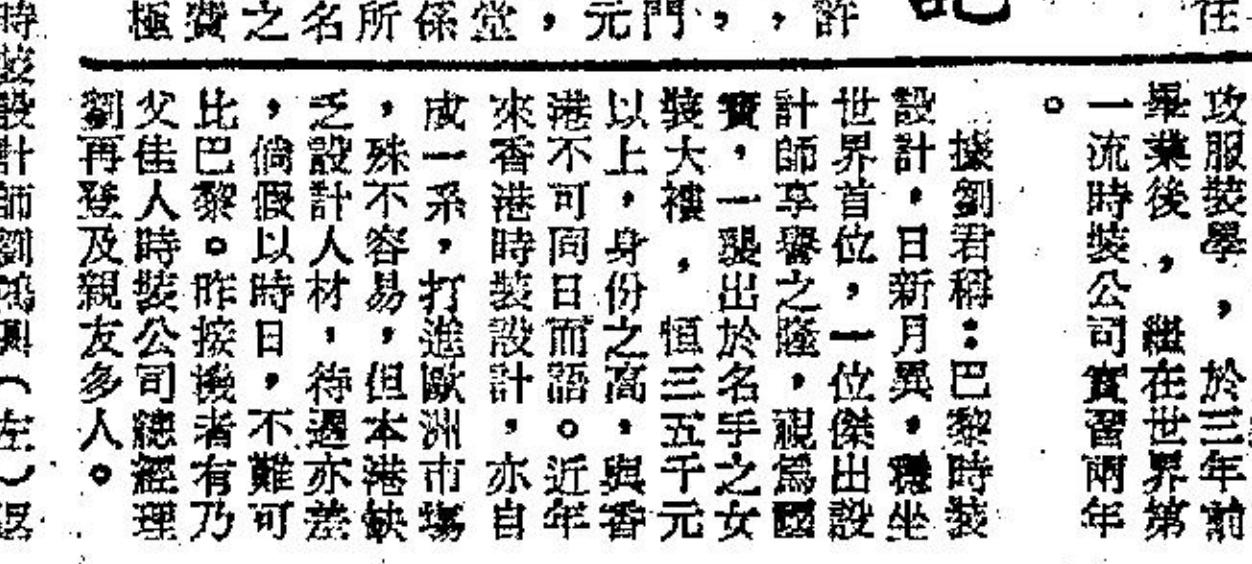 許
門
元
，
堂
係
所
名
之
費
極
攻服裝學，於三年前
畢業後，繼在世界第
一流時裝公司實習兩年
。
據劉君稱：巴黎時裝
設計，日新月異，穩坐
世界首位，一位傑出設
計師享譽之隆，視爲國
寶，一襲出於名手之女
裝大褸，恒三五千元
以上，身份之高，與香
港不可同日而語。近年
來香港時裝設計，亦自
成一系，打進歐洲市場
，殊不容易，但本港缺
乏設計人材，待遇亦差
，倘假以時日，不難可
比巴黎。昨接機者有乃
父佳人時裝公司總經理
劉再登及親友多人。
時裝設計師劉鴻興（左）